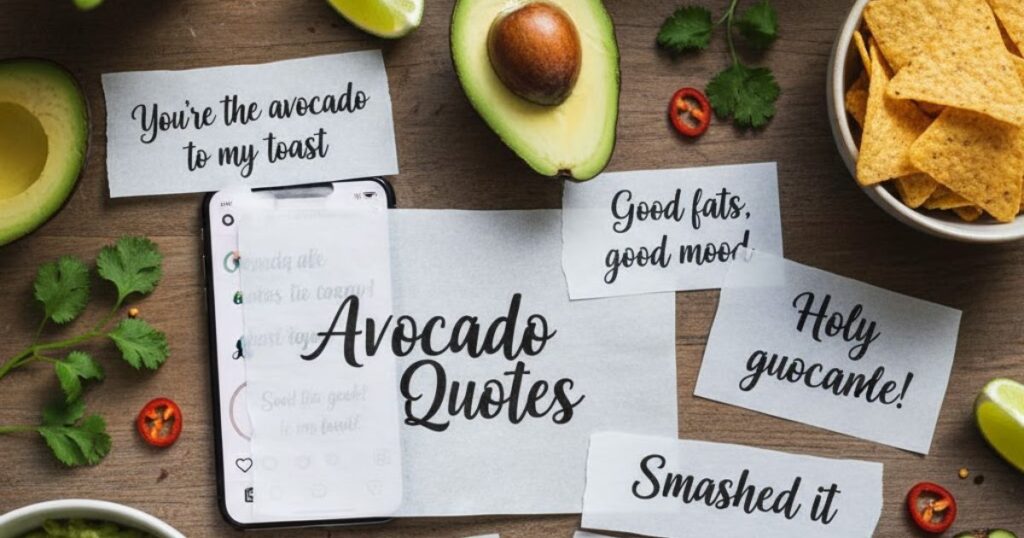 You're the avocado
to my toast
Good fats,
good mood
Avocado
Quotes
Holy
guocamle!
Smashed it